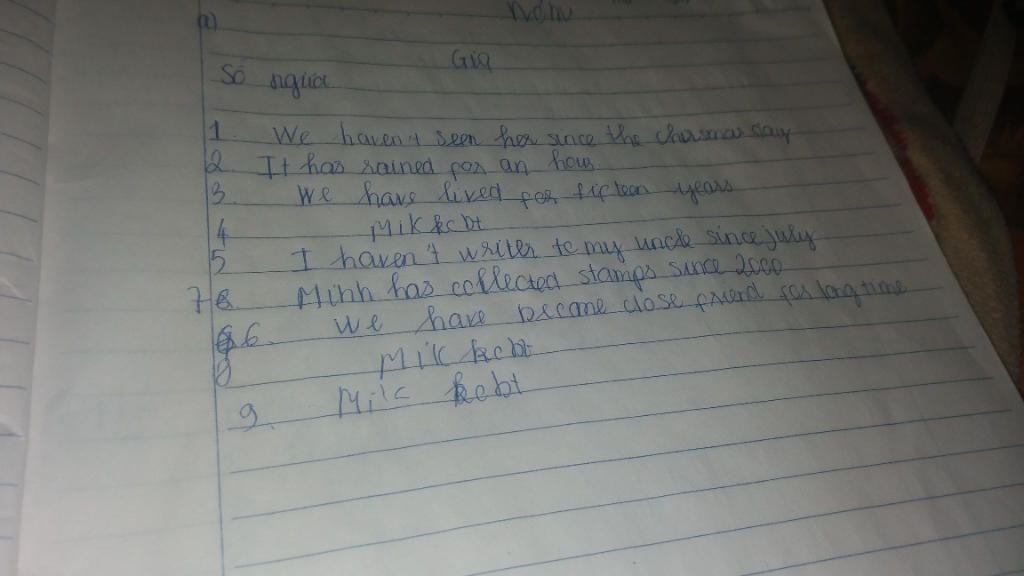 a)
Gia
Số người
1. We haven't seen her since the
2. It has rained for an hour
3. We have lived for fifteen years
4 Mik kcbt
5 I haven't writer to my uncle since july
7 Minh has collected stamps since 2000
6. We have become close friend for long time
8 Mik kcbt
9. Mik kcbt